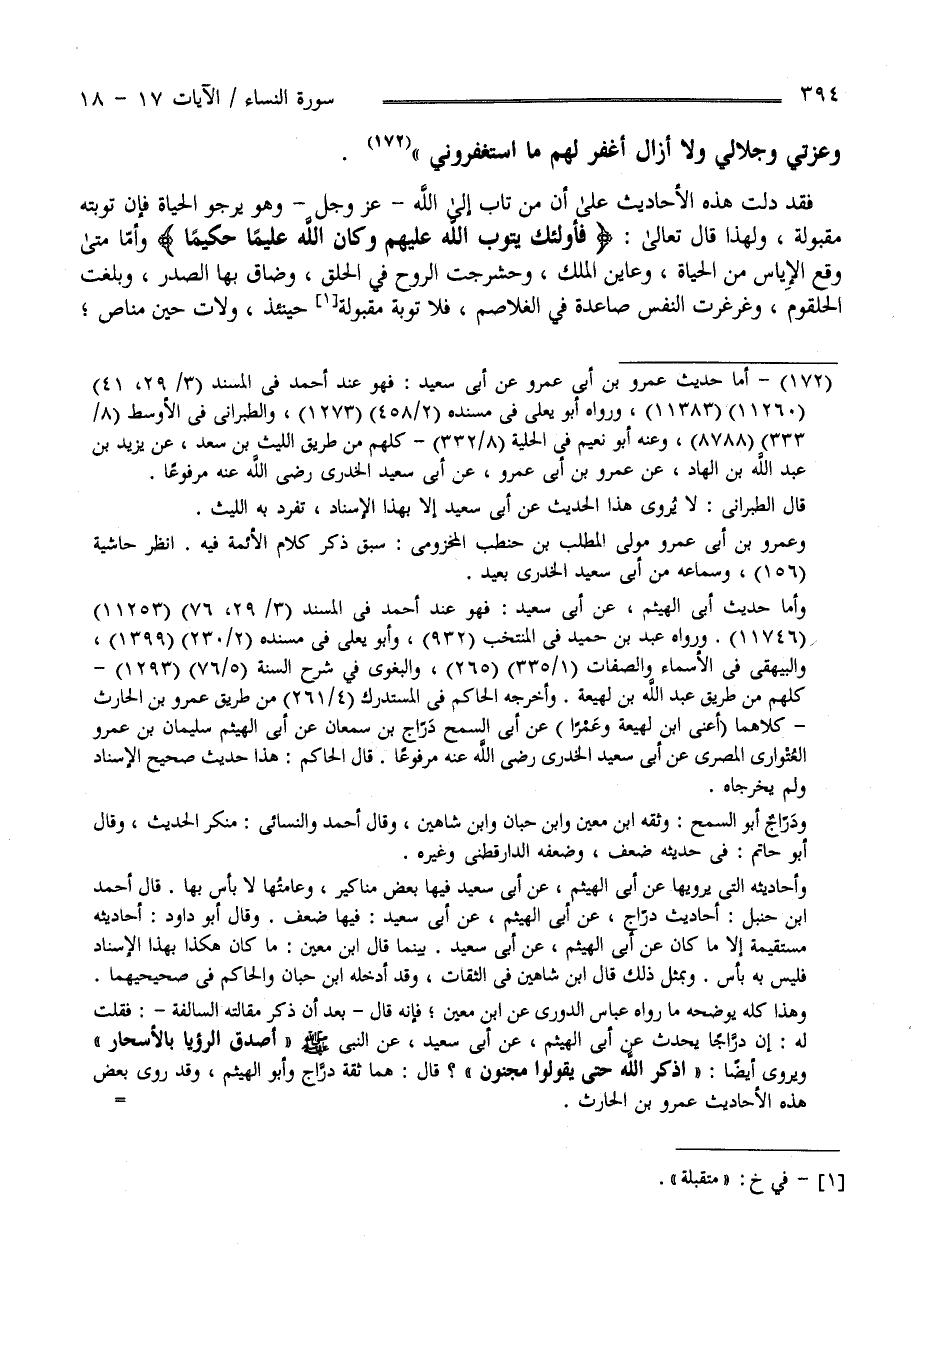 ٣٩٤ سورة النساء / الآيات ١٧ - ١٨
وعزتي وجلالي ولا أزال أغفر لهم ما استغفروني »(١٧٢) .
فقد دلت هذه الأحاديث علىٰ أن من تاب إلىٰ اللَّه - عز وجل - وهو يرجو الحياة فإن توبته
مقبولة ، ولهذا قال تعالىٰ : ﴿ فأولئك يتوب اللَّه عليهم وكان اللَّه عليمًا حكيمًا ﴾ وأمّا متىٰ
وقع الإِياس من الحياة ، وعاين الملك ، وحشرجت الروح في الحلق ، وضاق بها الصدر ، وبلغت
الحلقوم ، وغرغرت النفس صاعدة في الغلاصم ، فلا توبة مقبولة[١] حينئذ ، ولات حين مناص ؛
(١٧٢) - أما حديث عمرو بن أبى عمرو عن أبى سعيد : فهو عند أحمد فى المسند (٣/ ٢٩، ٤١)
(١١٢٦٠) (١١٣٨٣) ، ورواه أبو يعلى فى مسنده (٤٥٨/٢) (١٢٧٣) ، والطبرانى فى الأوسط (٨/
٣٣٣) (٨٧٨٨) ، وعنه أبو نعيم فى الحلية (٣٣٢/٨) - كلهم من طريق الليث بن سعد ، عن يزيد بن
عبد اللَّه بن الهاد ، عن عمرو بن أبى عمرو ، عن أبى سعيد الخدرى رضى اللَّه عنه مرفوعًا .
قال الطبرانى : لا يُروى هذا الحديث عن أبى سعيد إلا بهذا الإسناد ، تفرد به الليث .
وعمرو بن أبى عمرو مولى المطلب بن حنطب المخزومى : سبق ذكر كلام الأئمة فيه . انظر حاشية
(١٥٦) ، وسماعه من أبى سعيد الخدرى بعيد .
وأما حديث أبى الهيثم ، عن أبى سعيد : فهو عند أحمد فى المسند (٣/ ٢٩، ٧٦) (١١٢٥٣)
(١١٧٤٦) . ورواه عبد بن حميد فى المنتخب (٩٣٢) ، وأبو يعلى فى مسنده (٢٣٠/٢) (١٣٩٩) ،
والبيهقى فى الأسماء والصفات (٣٣٥/١) (٢٦٥) ، والبغوى في شرح السنة (٧٦/٥) (١٢٩٣) -
كلهم من طريق عبد اللَّه بن لهيعة . وأخرجه الحاكم فى المستدرك (٢٦١/٤) من طريق عمرو بن الحارث
- كلاهما (أعنى ابن لهيعة وعَمْرًا ) عن أبى السمح دَرَّاج بن سمعان عن أبى الهيثم سليمان بن عمرو
العُتْوارى المصرى عن أبى سعيد الخدرى رضى اللَّه عنه مرفوعًا . قال الحاكم : هذا حديث صحيح الإسناد
ولم يخرجاه .
ودَرَّاجٌ أبو السمح : وثقه ابن معين وابن حبان وابن شاهين ، وقال أحمد والنسائى : منكر الحديث ، وقال
أبو حاتم : فى حديثه ضعف ، وضعفه الدارقطنى وغيره .
وأحاديثه التى يرويها عن أبى الهيثم ، عن أبى سعيد فيها بعض مناكير ، وعامتُها لا بأس بها . قال أحمد
ابن حنبل : أحاديث درَّاج ، عن أبى الهيثم ، عن أبى سعيد : فيها ضعف . وقال أبو داود : أحاديثه
مستقيمة إلا ما كان عن أبى الهيثم ، عن أبى سعيد . بينما قال ابن معين : ما كان هكذا بهذا الإسناد
فليس به بأس . وبمثل ذلك قال ابن شاهين فى الثقات ، وقد أدخله ابن حبان والحاكم فى صحيحيهما .
وهذا كله يوضحه ما رواه عباس الدورى عن ابن معين ؛ فإنه قال - بعد أن ذكر مقالته السالفة - : فقلت
له : إن درَّاجًا يحدث عن أبى الهيثم ، عن أبى سعيد ، عن النبى ﷺ « أصدق الرؤيا بالأسحار »
ويروى أيضًا : « اذكر اللَّه حتى يقولوا مجنون » ؟ قال : هما ثقة درَّاج وأبو الهيثم ، وقد روى بعض
هذه الأحاديث عمرو بن الحارث . =
[١] - في خ : « متقبلة » .